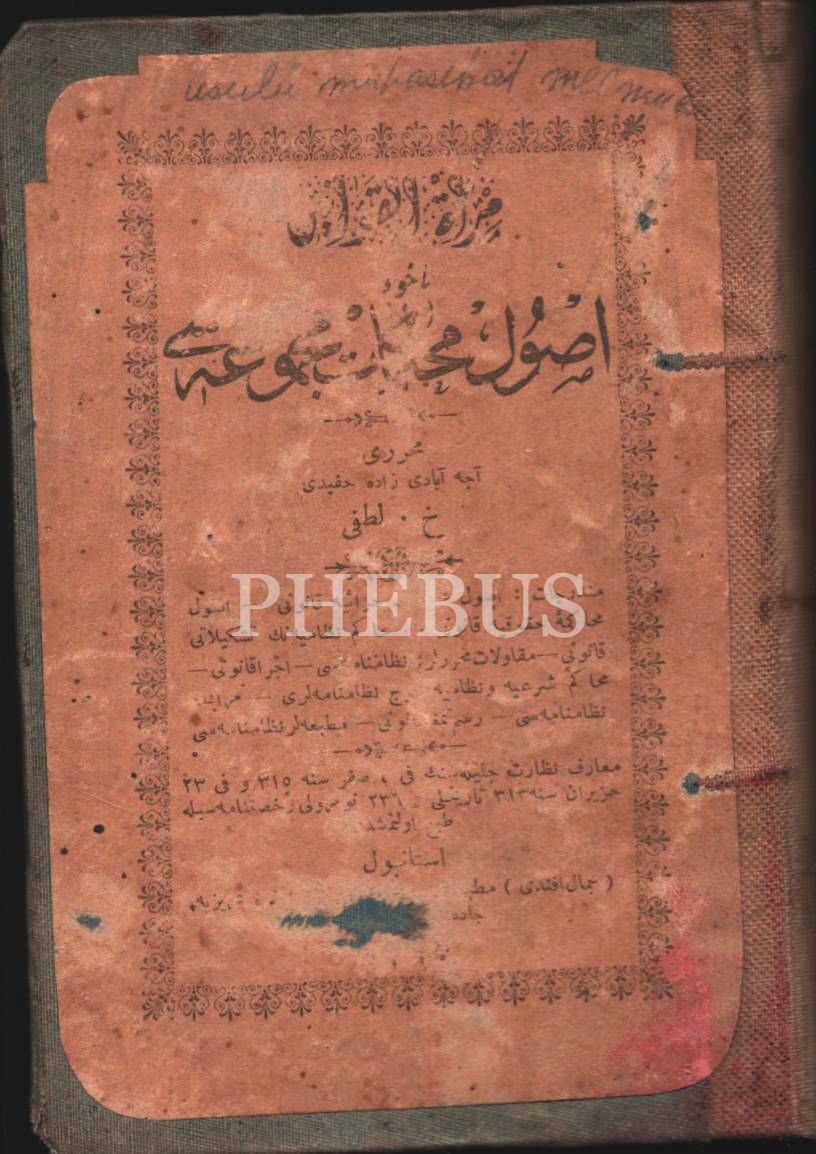 usulü muhasebat mecmua
مرآة القوانین
یاخود
اصول محاکمات مجموعه‌سی
محرری
آجه آبادی زاده حفیدی
خ . لطفی
PHEBUS
مندرجات : اصول قانونی — اصول
محاکمهٔ حقوقیه محاکم نظامیه‌نك تشکیلاتی
قانونی — مقاولات محررلری نظامنامه‌سی — اجرا قانونی —
محاکم شرعیه ونظامیه خرج نظامنامه‌لری —
نظامنامه‌سی — رسم تمغا قانونی — مطبعه‌لر نظامنامه‌سی
معارف نظارت جلیله‌سنك فی ٤ صفر سنه ٣١٥ و فی ٢٣
حزیران سنه ٣١٣ تاریخلی و ٢٣٦ نومرولی رخصتنامه‌سیله
طبع اولنمشدر
استانبول
( جمال افندی )
جاده